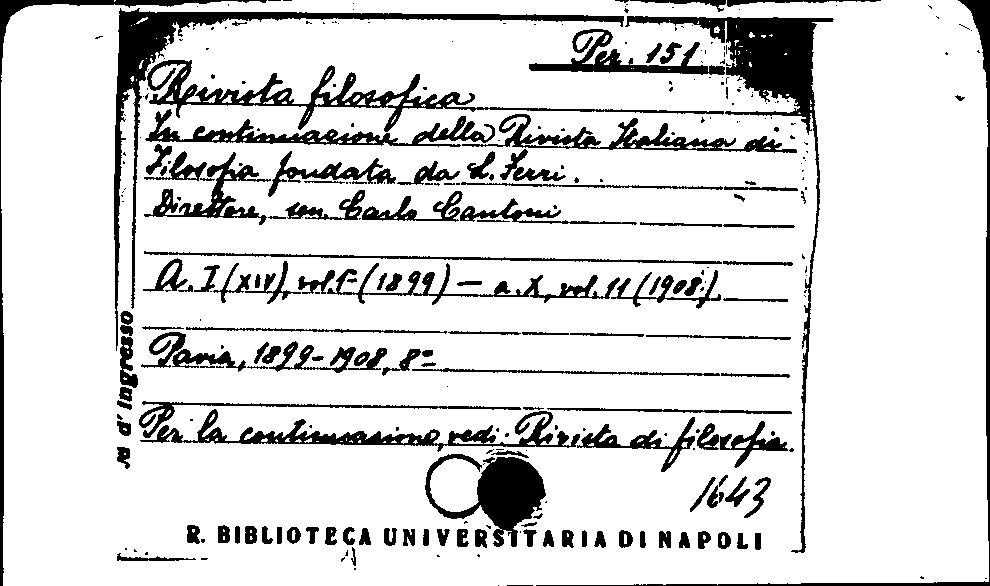 Per. 151
Rivista filosofica
In continuazione della Rivista Italiana di
Filosofia fondata da L. Ferri.
Direttore, sen. Carlo Cantoni
A. I (XIV), vol. 1º (1899) — a. X, vol. 11 (1908).
Pavia, 1899-1908, 8º
Per la continuazione, vedi: Rivista di filosofia.
1643
R. BIBLIOTECA UNIVERSITARIA DI NAPOLI
d' ingresso